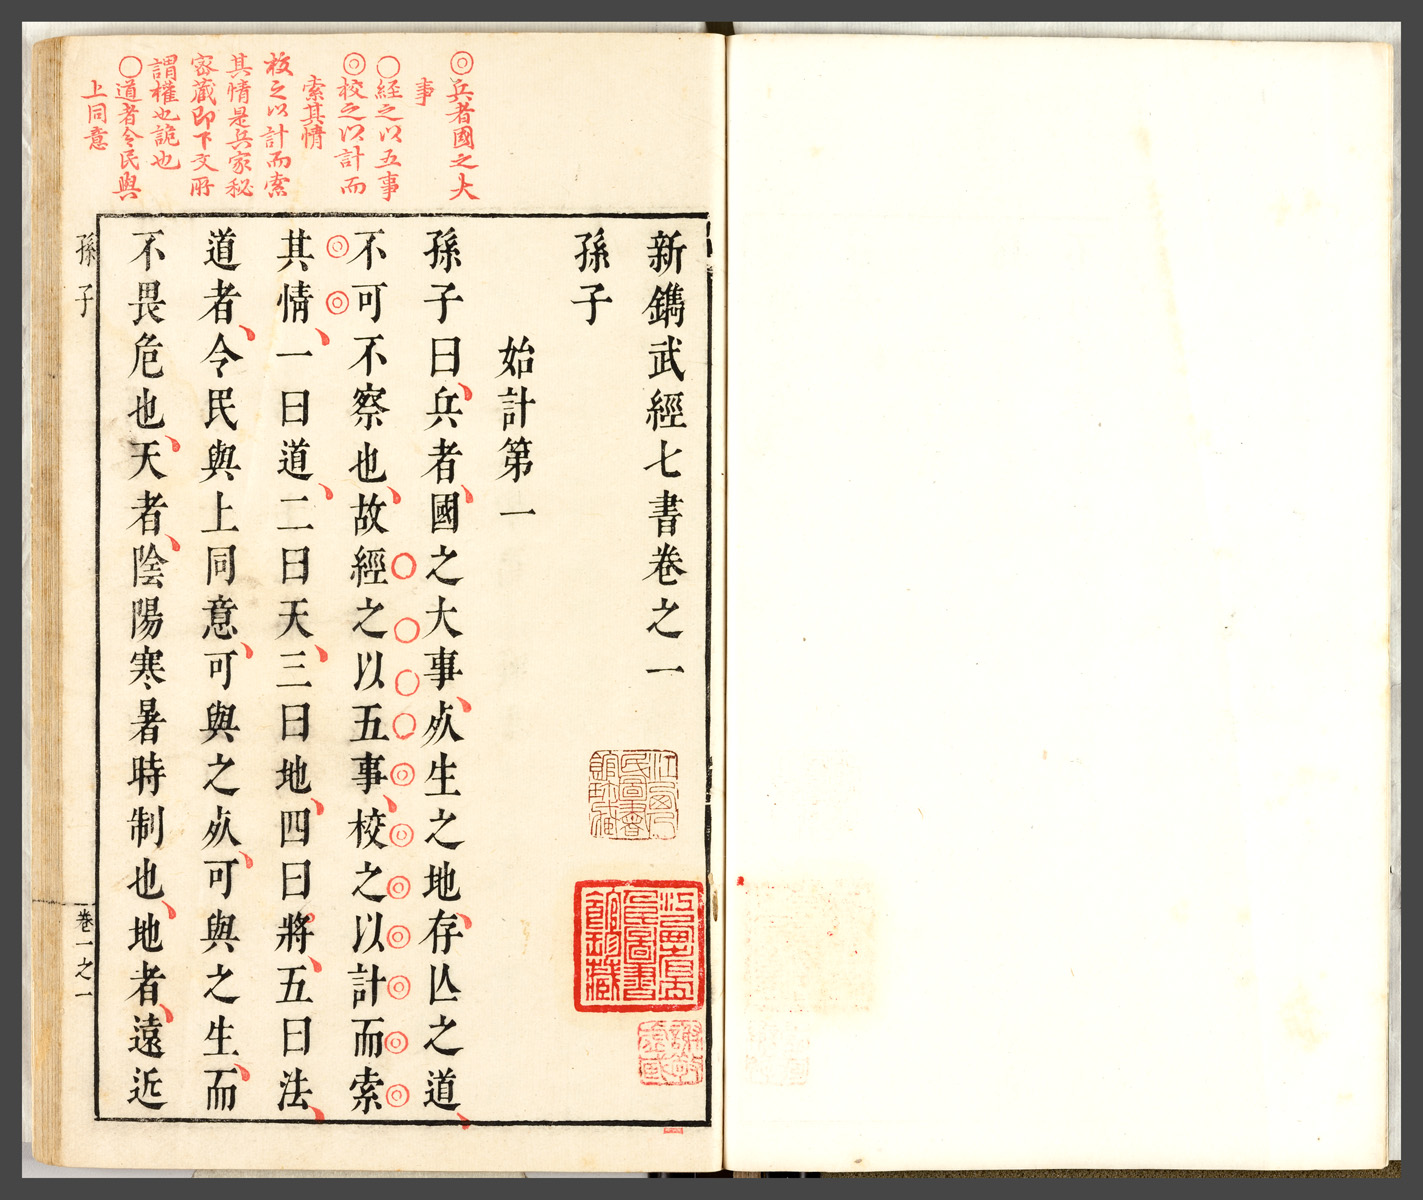 ◎兵者國之大
事
○経之以五事
◎校之以計而
索其情
校之以計而索
其情是兵家秘
密藏即下文所
謂權也詭也
○道者令民與
上同意
新鐫武經七書卷之一
孫子
始計第一
孫子曰兵者國之大事㱥生之地存亾之道
不可不察也故經之以五事校之以計而索
其情一曰道二曰天三曰地四曰將五曰法
道者令民與上同意可與之㱥可與之生而
不畏危也天者陰陽寒暑時制也地者遠近
孫子
卷一之一